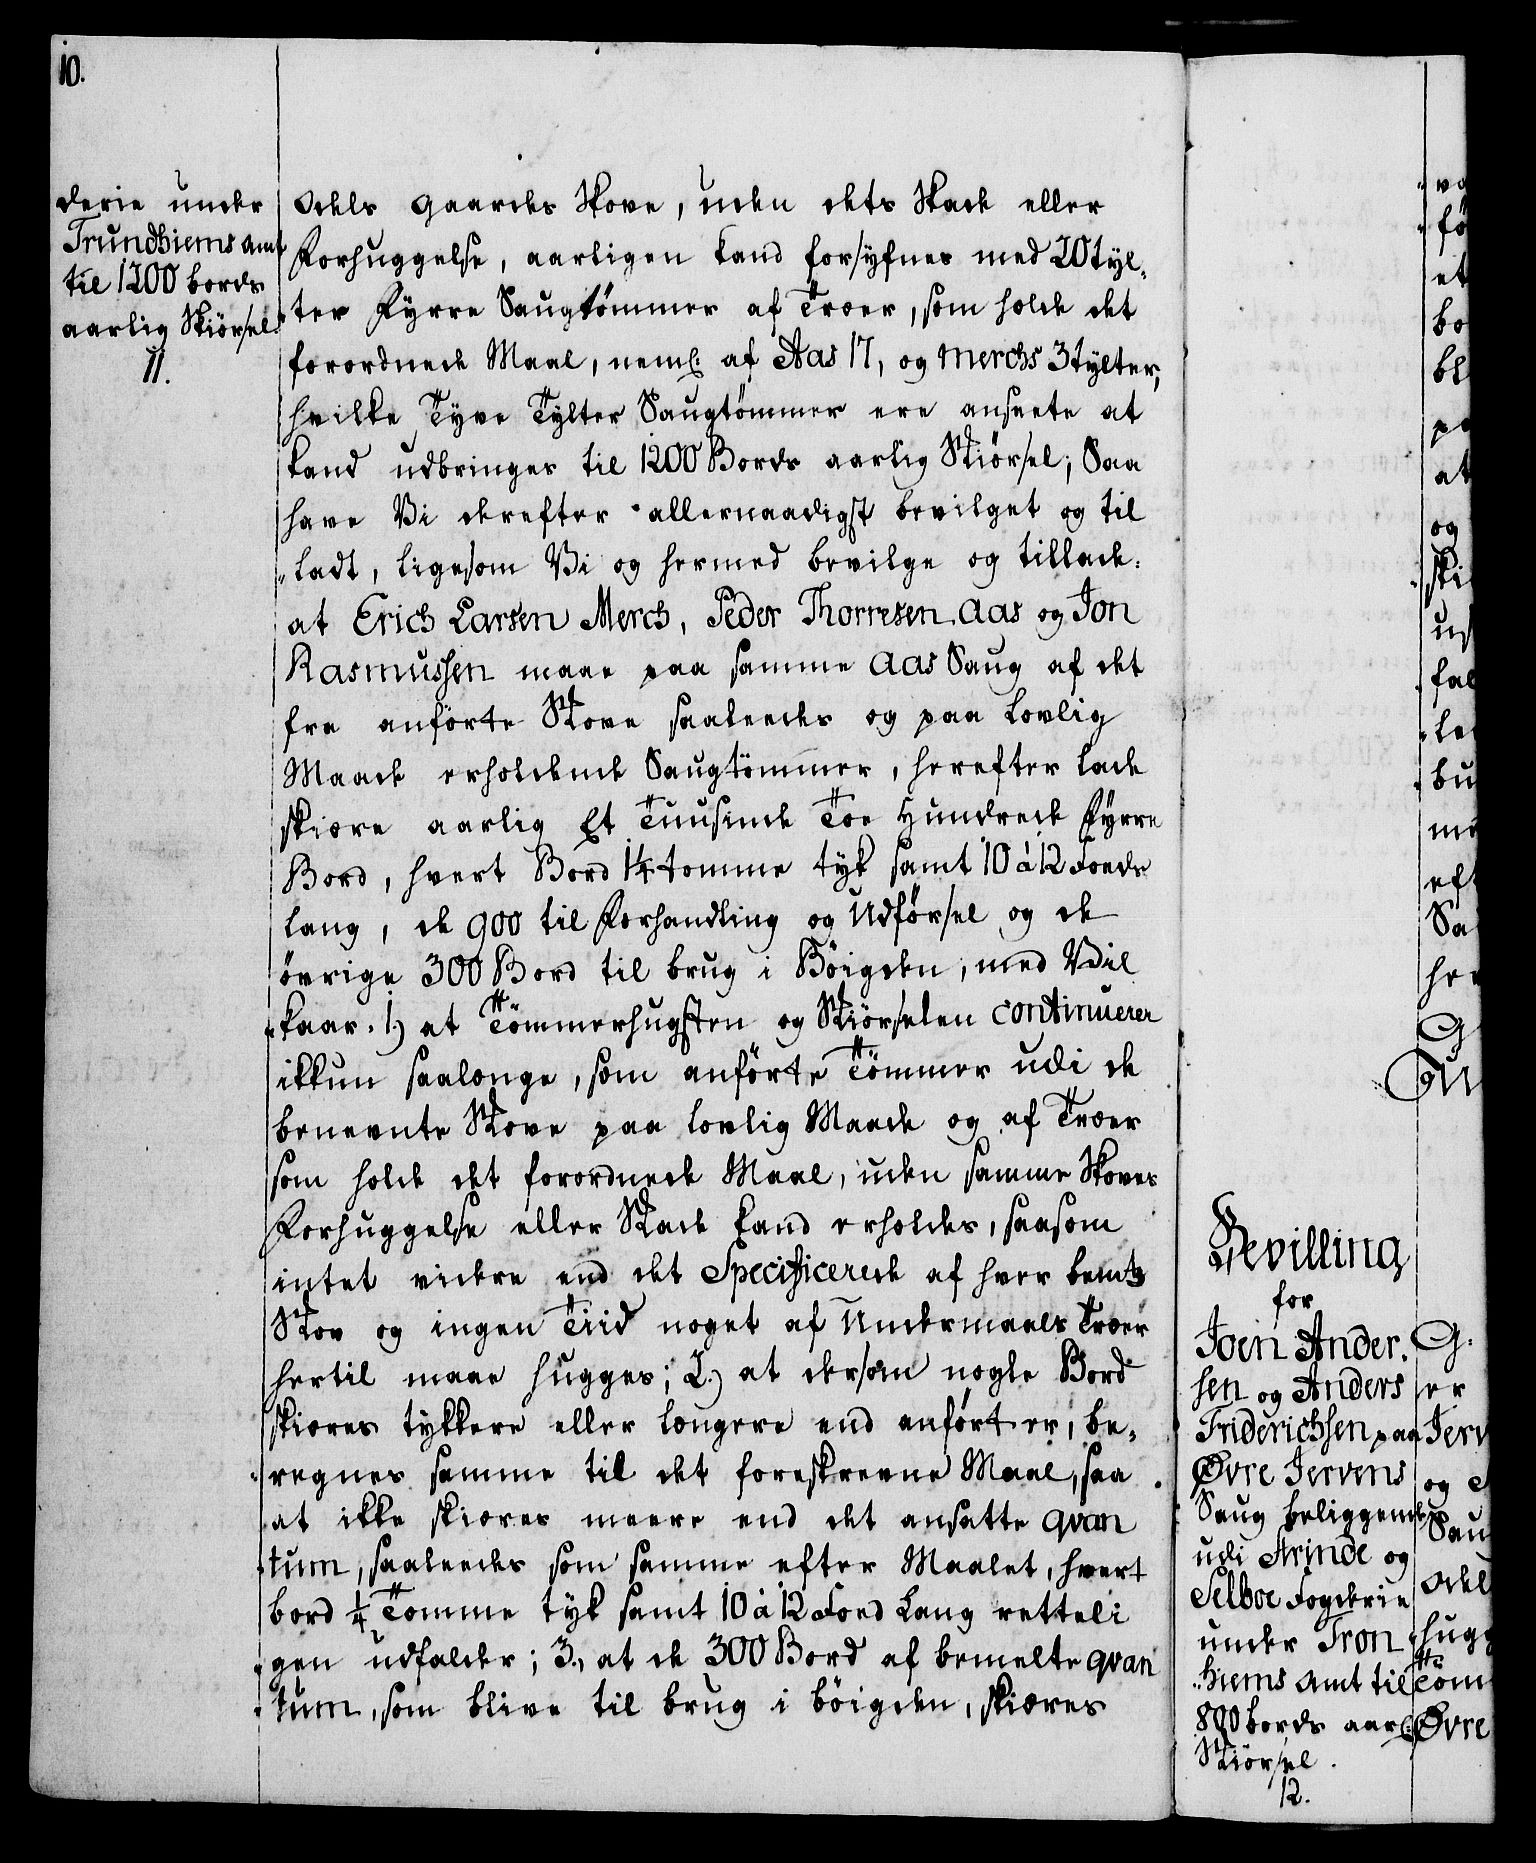 10.
derie under
Trundhiems Amt
til 1200 bords
aarlig Skiörsel.
11.
Odels Gaardes Skove, uden dets Skade eller
Forhuggelse, aarligen kand forsyfnes med 20 tyl„
„ter Fyrre Saugtömmer af Træer, som holde det
forordnede Maal, neml: af Aas 17, og Merchs 3 tylter,
hvilke Tyve Tylter Saugtömmer ere anseete at
kand udbringes til 1200 Bords aarlig Skiörsel; Saa
have Vi derefter allernaadigst bevilget og til
„ladt, ligesom Vi og hermed bevilge og tillade:
at Erich Larsen Merch, Peder Thorresen Aas og Jon
Rasmussen maae paa samme Aas Saug af det
fra anförte Skove saaledes og paa Lovlig
Maade erholdende Saugtömmer, herefter lade
skiære aarlig Et Tuusinde Toe Hundrede Fyrre
Bord, hvert Bord 1¼ tomme tyk samt 10 à 12 Foeds
lang, de 900 til Forhandling og Udförsel og de
övrige 300 Bord til brug i Böigden, med Vil
„kaar. 1.) at Tömmerhugsten og Skiörselen continuerer
ikkun saalænge, som anförte Tömmer udi de
benevnte Skove paa lovlig Maade og af Træer
som holde det forordnede Maal, uden samme Skoves
Forhuggelse eller Skade kand erholdes, saasom
intet videre end det Specificerede af hver bemte
Skov og ingen Tiid noget af Undermaals Træer
hertil maae hugges; 2.) at dersom nogle Bord
skiæres tykkere eller længere end anfört er, be„
„regnes samme til det foreskrevne Maal, saa
at ikke skiæres meere end det ansatte qvan
„tum, saaledes som samme efter Maalet, hvert
bord ¼ Tomme tyk samt 10 à 12 Foed Lang retteli
„gen udfalder; 3., at de 300 Bord af bemelte qvan
„tum, som blive til brug i böigden, skiæres
Bevilling
for
Joen Ander„
sen og Anders
Friderichsen paa
Øvre Jervens
Saug beliggende
udi Strinde og
Selboe Fogderie
under Tron
„hiems Amt til
800 bords aarl:
Skiörsel.
12.